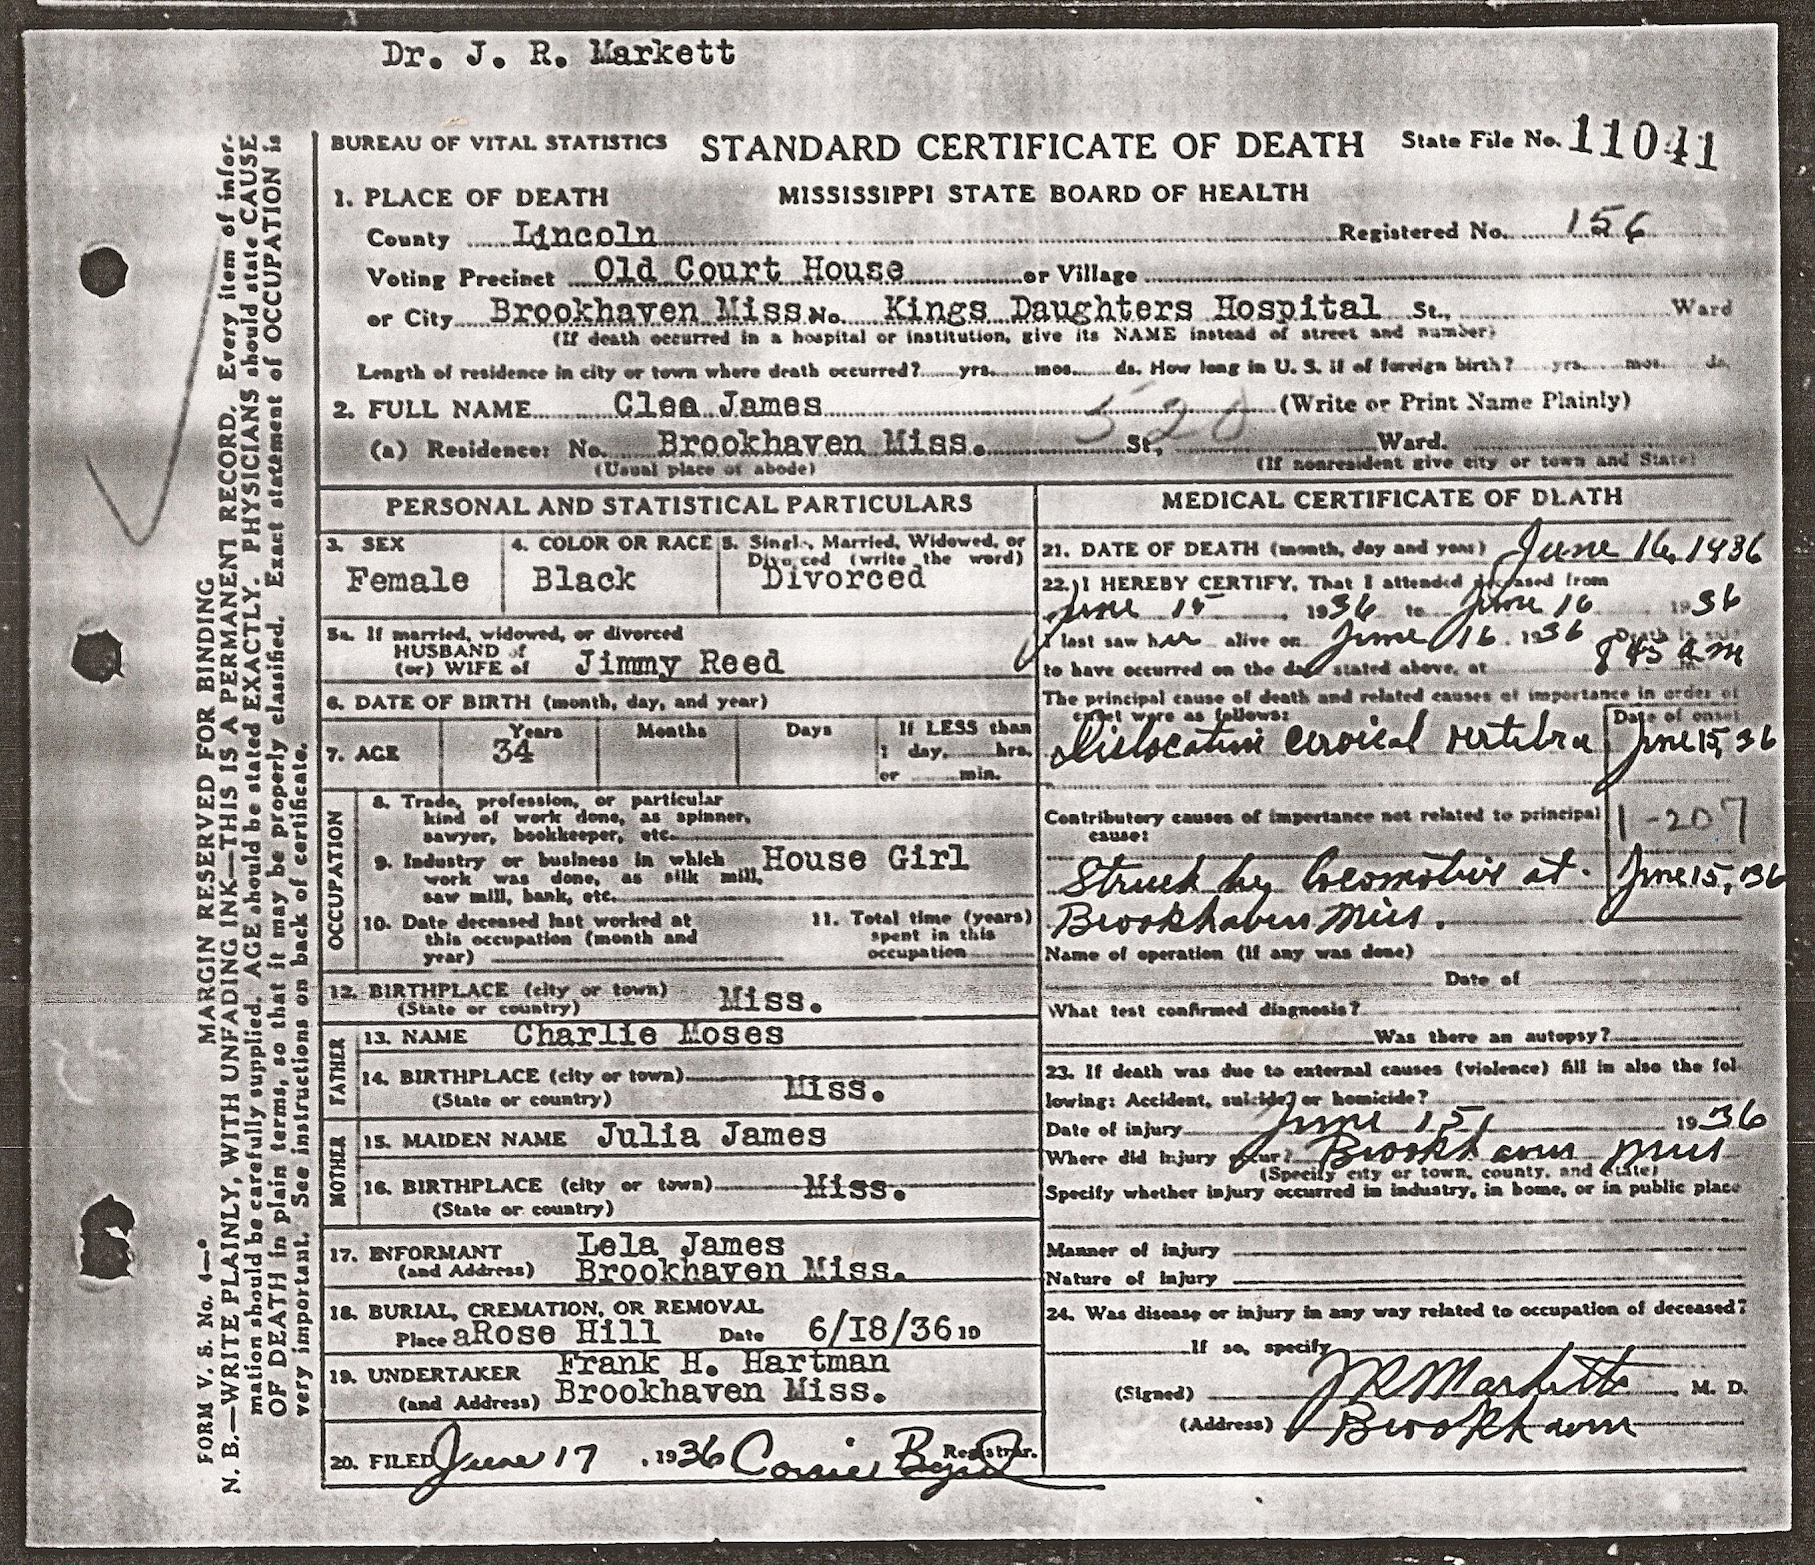 Dr. J. R. Markett
BUREAU OF VITAL STATISTICS STANDARD CERTIFICATE OF DEATH State File No. 11041
1. PLACE OF DEATH MISSISSIPPI STATE BOARD OF HEALTH
County Lincoln Registered No. 156
Voting Precinct Old Court House or Village
or City Brookhaven Miss. No. Kings Daughters Hospital St., Ward
(If death occurred in a hospital or institution, give its NAME instead of street and number)
Length of residence in city or town where death occurred? yrs. mos. ds. How long in U. S. if of foreign birth? yrs. mos. ds.
2. FULL NAME Clea James (Write or Print Name Plainly)
520
(a) Residence: No. Brookhaven Miss. St., Ward.
(Usual place of abode) (If nonresident give city or town and State)
PERSONAL AND STATISTICAL PARTICULARS
3. SEX
Female
4. COLOR OR RACE
Black
5. Single, Married, Widowed, or
Divorced (write the word)
Divorced
5a. If married, widowed, or divorced
HUSBAND of
(or) WIFE of Jimmy Reed
6. DATE OF BIRTH (month, day, and year)
7. AGE Years Months Days If LESS than
34 1 day, hrs.
or min.
OCCUPATION
8. Trade, profession, or particular
kind of work done, as spinner,
sawyer, bookkeeper, etc.
9. Industry or business in which House Girl
work was done, as silk mill,
saw mill, bank, etc.
10. Date deceased last worked at
this occupation (month and
year)
11. Total time (years)
spent in this
occupation
12. BIRTHPLACE (city or town) Miss.
(State or country)
FATHER
13. NAME Charlie Moses
14. BIRTHPLACE (city or town) Miss.
(State or country)
MOTHER
15. MAIDEN NAME Julia James
16. BIRTHPLACE (city or town) Miss.
(State or country)
17. INFORMANT Lela James
(and Address) Brookhaven Miss.
18. BURIAL, CREMATION, OR REMOVAL
Place aRose Hill Date 6/18/36 19
19. UNDERTAKER Frank H. Hartman
(and Address) Brookhaven Miss.
20. FILED June 17, 1936 Byrd Registrar.
MEDICAL CERTIFICATE OF DEATH
21. DATE OF DEATH (month, day and year) June 16, 1936
22. I HEREBY CERTIFY, That I attended deceased from
June 15, 1936 to June 16 1936
I last saw her alive on June 16, 1936 Death is said
to have occurred on the day stated above, at 8 45 a m
The principal cause of death and related causes of importance in order of
onset were as follows: Date of onset
Dislocation cervical vertebra June 15, 36
Contributory causes of importance not related to principal
cause: 1-207
Struck by locomotive at June 15, 36
Brookhaven Miss.
Name of operation (if any was done)
Date of
What test confirmed diagnosis?
Was there an autopsy?
23. If death was due to external causes (violence) fill in also the fol-
lowing: Accident, suicide, or homicide?
Date of injury June 15, 1936
Where did injury occur? Brookhaven Miss
(Specify city or town, county, and State)
Specify whether injury occurred in industry, in home, or in public place
Manner of injury
Nature of injury
24. Was disease or injury in any way related to occupation of deceased?
If so, specify
(Signed) J R Markette M. D.
(Address) Brookhaven
FORM V. S. No. 4—
MARGIN RESERVED FOR BINDING
N. B.—WRITE PLAINLY, WITH UNFADING INK—THIS IS A PERMANENT RECORD. Every item of infor-
mation should be carefully supplied. AGE should be stated EXACTLY. PHYSICIANS should state CAUSE
OF DEATH in plain terms, so that it may be properly classified. Exact statement of OCCUPATION is
very important. See instructions on back of certificate.